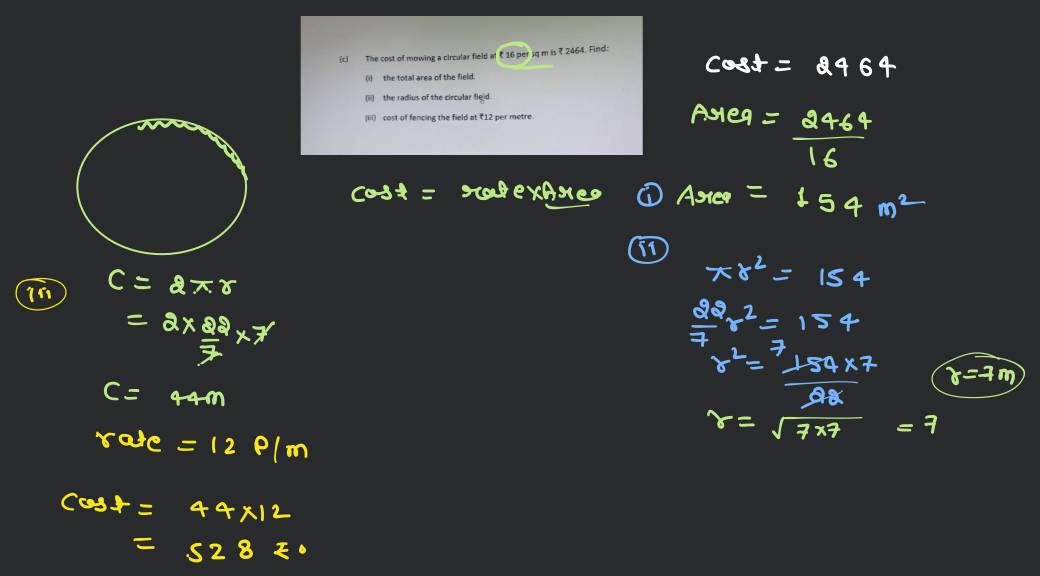 (c) The cost of mowing a circular field at ₹ 16 per sq m is ₹ 2464. Find:
(i) the total area of the field.
(ii) the radius of the circular field.
(iii) cost of fencing the field at ₹12 per metre.
cost = 2464
Area = 2464
16
cost = rate×Area
(i) Area = 154 m²
(ii)
πr² = 154
22/7 r² = 154
r² = 7 154×7
22
r = √7×7 = 7
r=7m
(iii)
C = 2πr
= 2×22/7×7
C = 44m
rate = 12 P/m
Cost = 44×12
= 528 ₹.